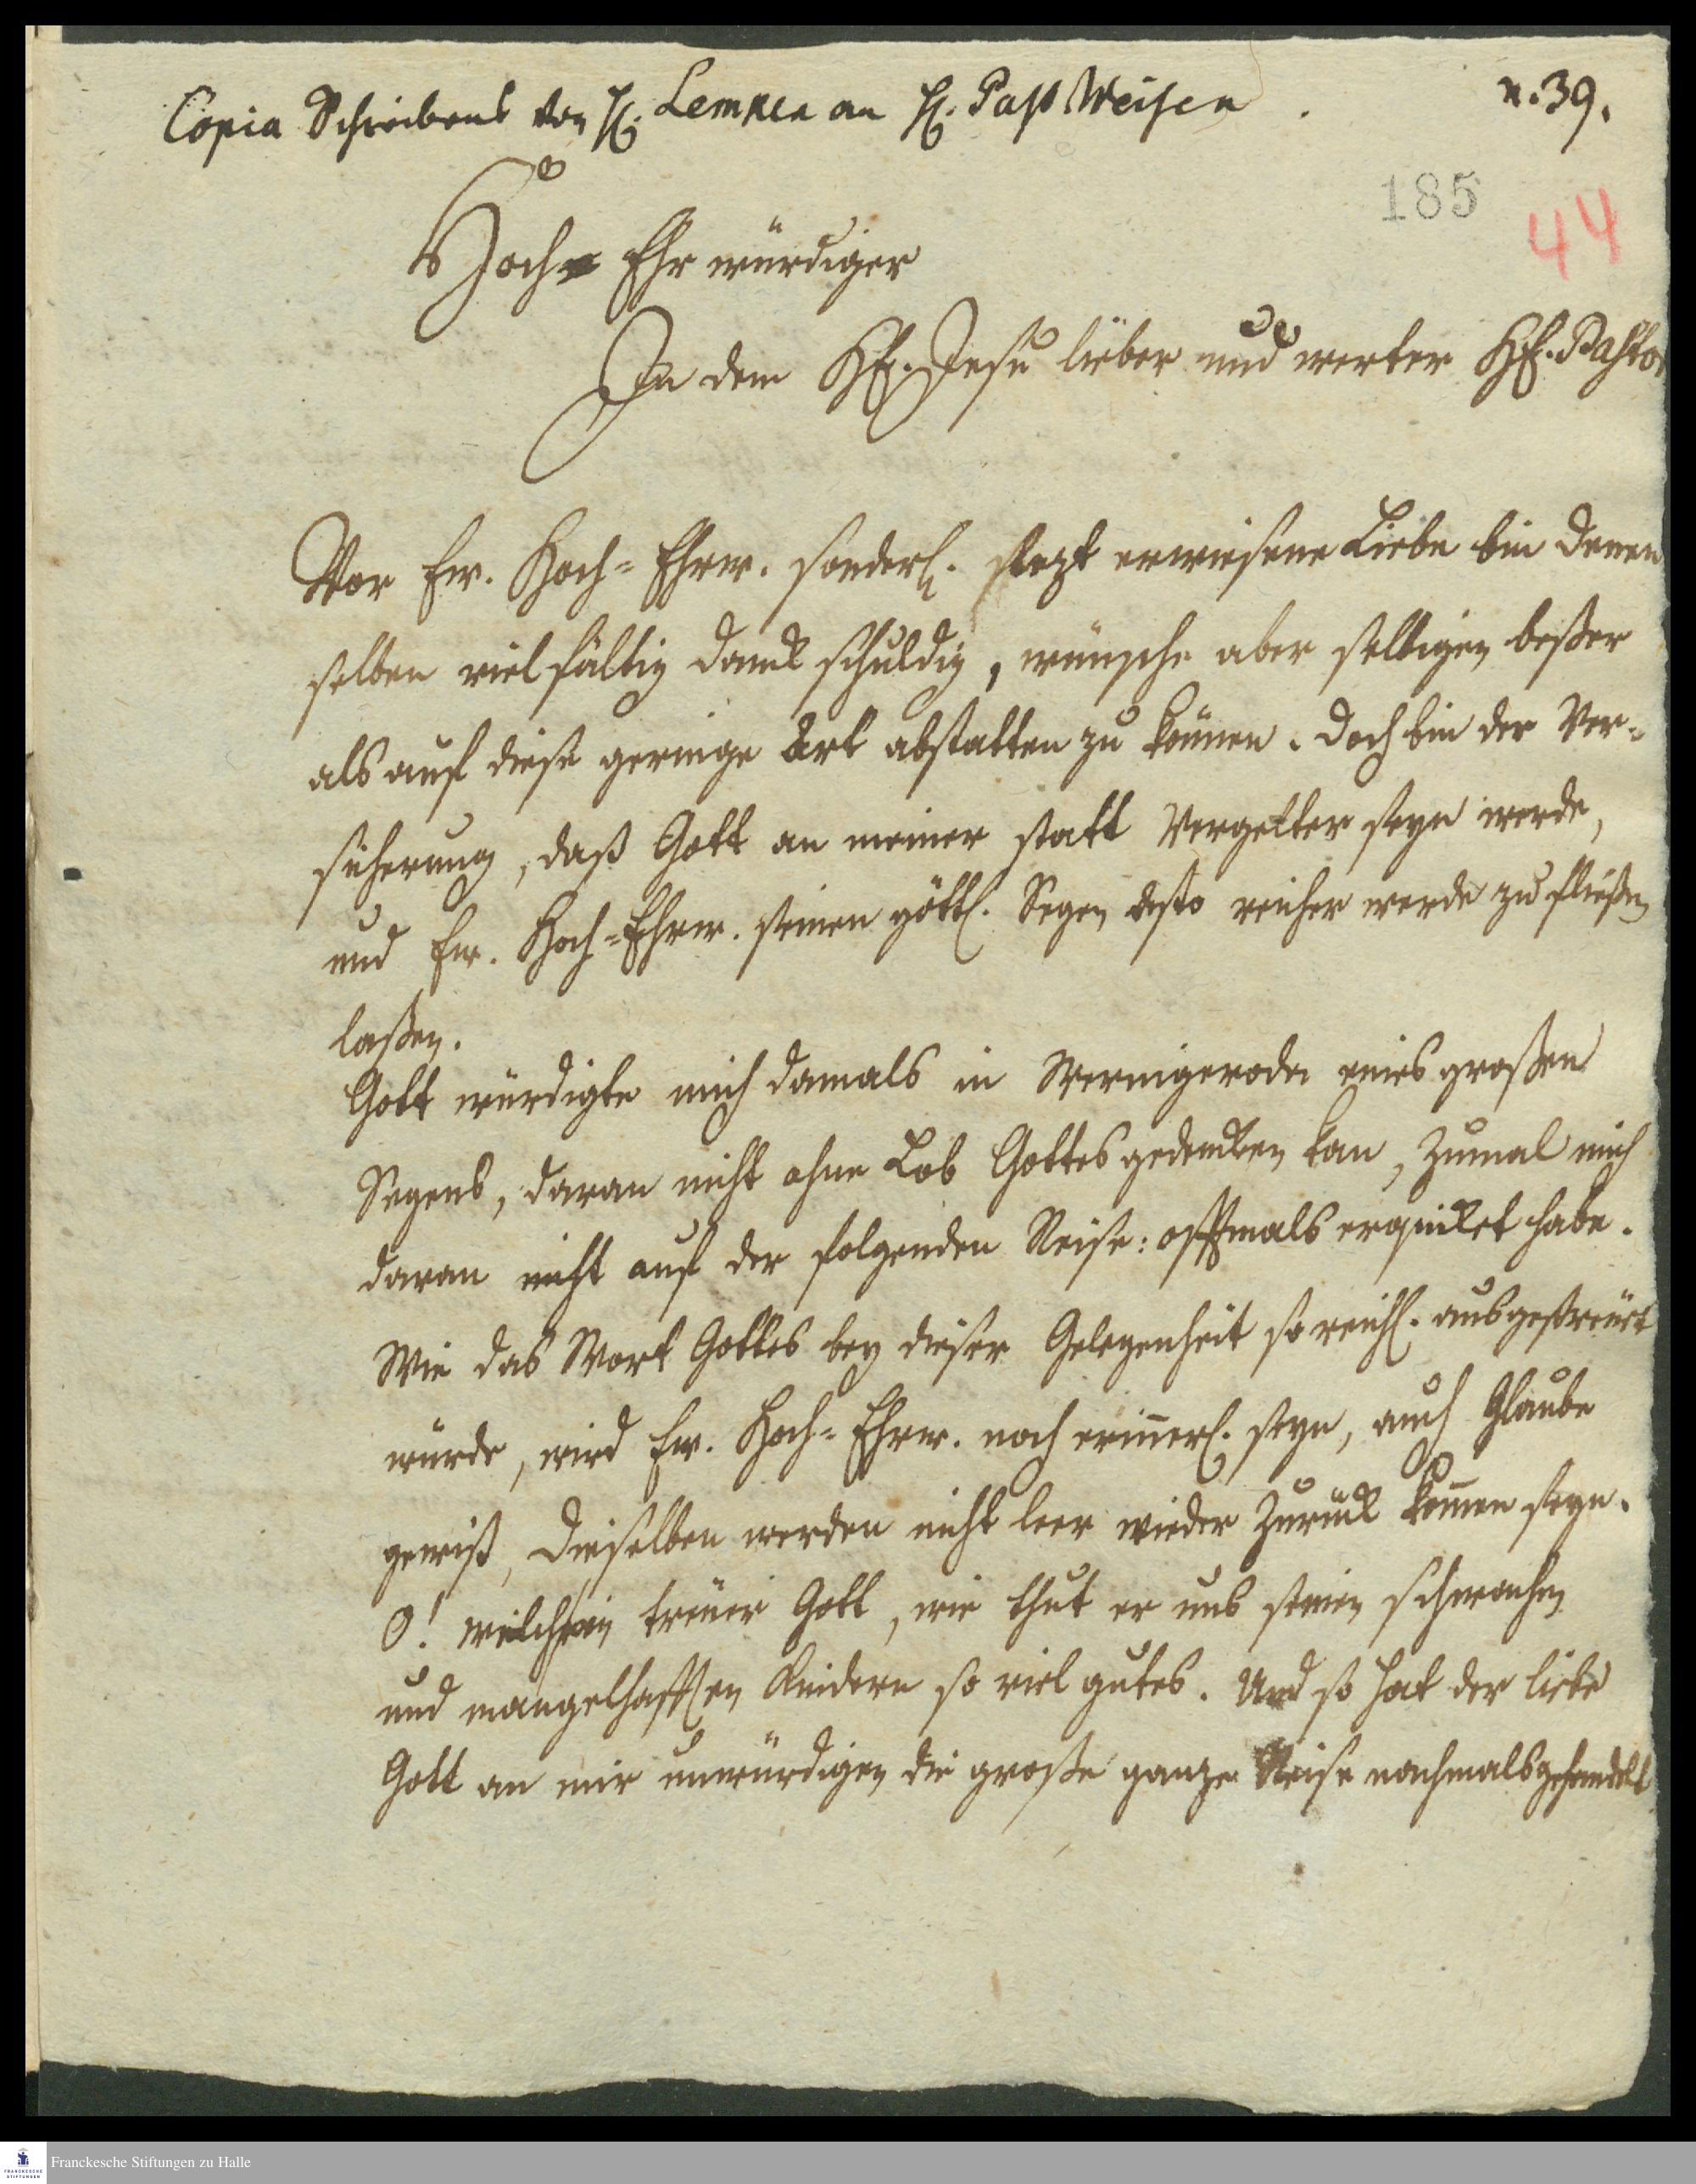 Copia Schreibens von H. Lemken an H. Past Weisen.
n. 39.
185
44
Hoch-Ehrwürdiger
In dem HE. Jesu lieber und werter HE. Pastor
Vor Ew. Hoch-Ehrw. sonderl. stezt erwiesene Liebe bin denen
selben vielfältig danck schuldig, wünsche aber selbigen beßer
als auf diese geringe Art abstatten zu können. Doch bin der Ver-
sicherung, daß Gott an meiner statt Vergelter seyn werde,
und Ew. Hoch-Ehrw. seinen göttl. Segen desto reicher werde zufließen
laßen.
Gott würdigte mich damals in Wernigeroda eines großen
Segens, daran nicht ohne Lob Gottes gedencken kan, zumal mich
daran nicht auf der folgenden Reise: offtmals erquicket habe.
Wie das Wort Gottes bey dieser Gelegenheit so reichl. ausgestreüet
würde, wird Ew. Hoch-Ehrw. noch erinnerl. seyn, auch Glaube
gewiß, Dieselben werden nicht leer wieder zurück kommen seyn.
O! welch ein treüer Gott, wie thut er uns seinen schwachen
und mangelhafften Kindern so viel gutes. Und so hat der liebe
Gott an mir unwürdigen die große ganze Reise nachmals gehandelt
Franckesche Stiftungen zu Halle